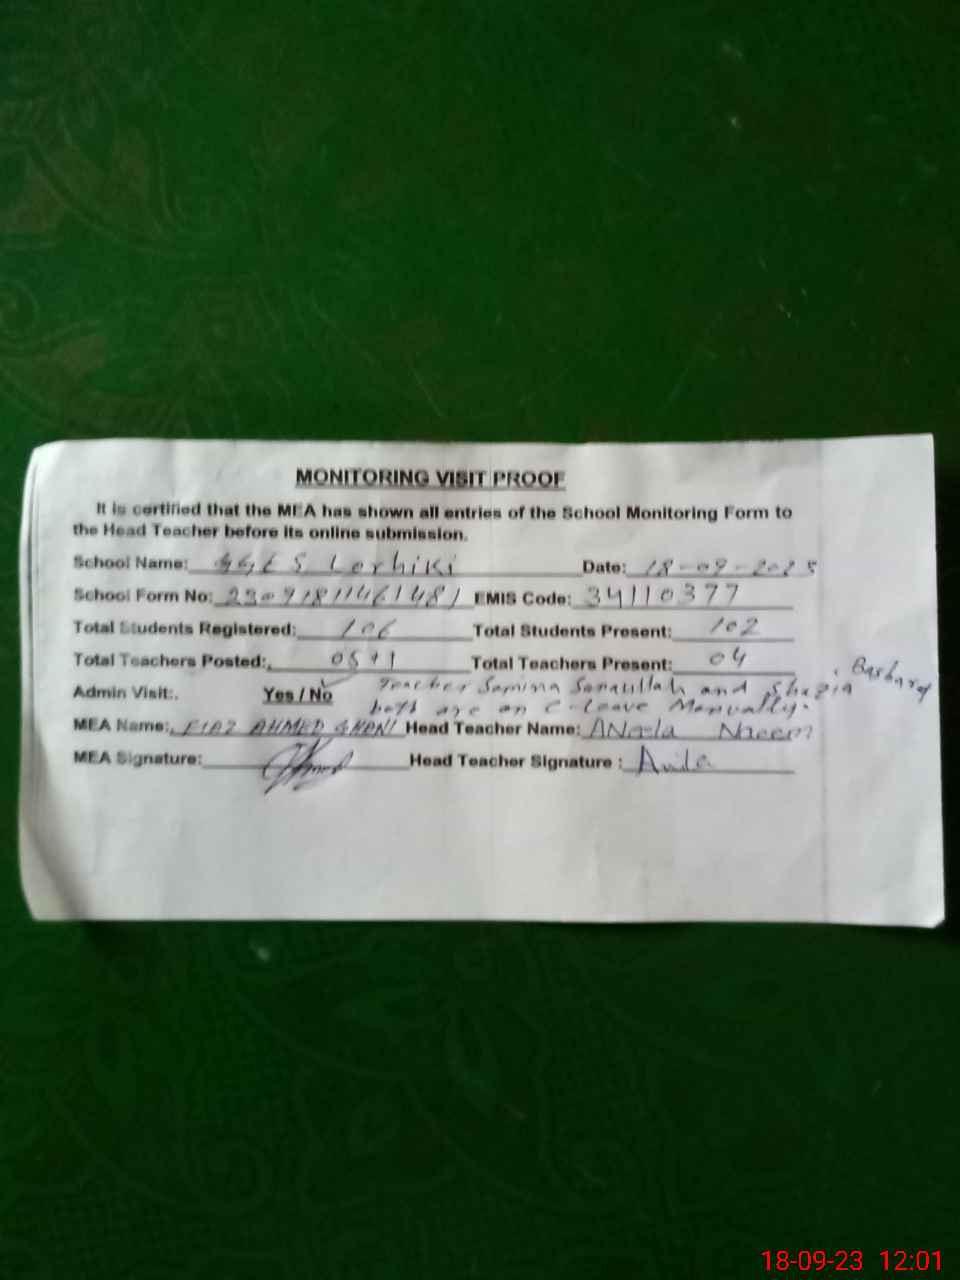 MONITORING VISIT PROOF
It is certified that the MEA has shown all entries of the School Monitoring Form to
the Head Teacher before its online submission.
School Name: GGES Lorhiki Date: 18-09-2023
School Form No: EMIS Code: 34110377
Total Students Registered: 106 Total Students Present: 102
Total Teachers Posted: 05+1 Total Teachers Present: 04
Admin Visit: Yes / No Teacher Samina Sanaullah and Shazia Basharat
both are on C-leave Manually.
MEA Name: FIAZ AHMED GHANI Head Teacher Name: ANeela Naeem
MEA Signature: Head Teacher Signature :
18-09-23 12:01